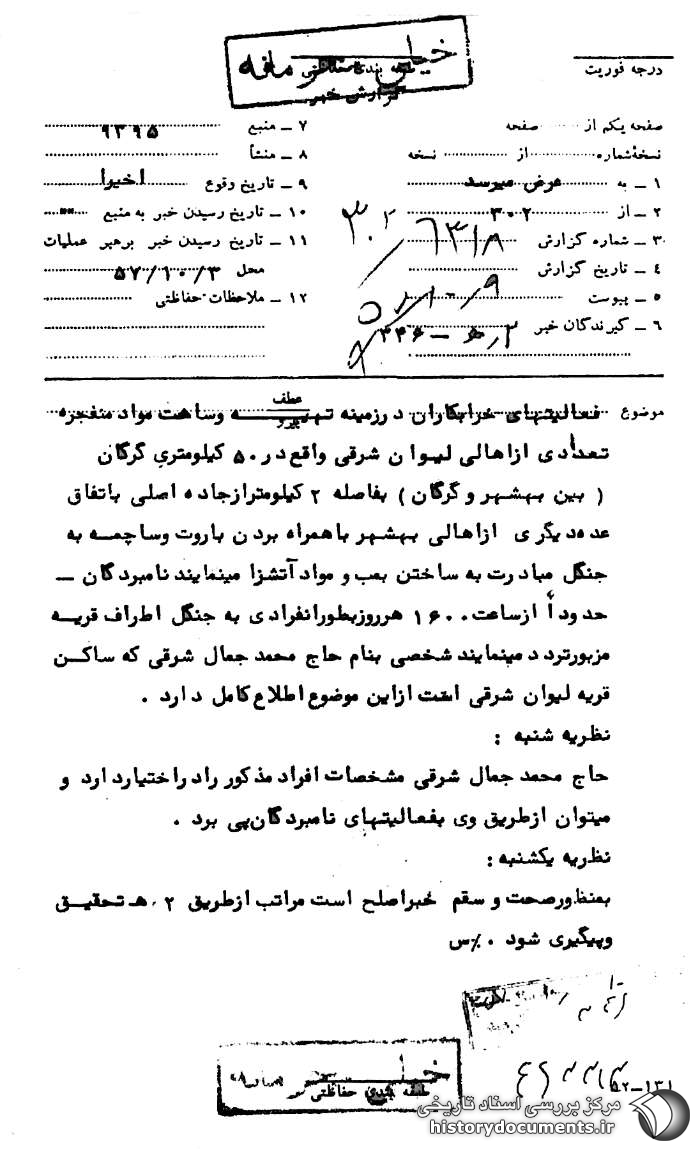 خیلی محرمانه
طبقه بندی حفاظتی
گزارش خبر
درجه فوریت
صفحه یکم از ........ صفحه
۷ ـ منبع ۹۳۹۵
نسخه شماره ........ از ........ نسخه
۸ ـ منشأ
۱ ـ به عرض میرسد
۹ ـ تاریخ وقوع اخیرا
۲ ـ از ۳۰۲
۱۰ ـ تاریخ رسیدن خبر به منبع ""
۳ ـ شماره گزارش
۱۱ ـ تاریخ رسیدن خبر برهبر عملیات
۴ ـ تاریخ گزارش
محل ۵۷/۱۰/۳
۵ ـ پیوست
۱۲ ـ ملاحظات حفاظتی
۶ ـ گیرندگان خبر
عطف
پیرو
موضوع فعالیتهای خرابکاران درزمینه تهیـــه وساخت مواد منفجره
تعدادی ازاهالی لیوان شرقی واقع در ۵۰ کیلومتری گرگان
( بین بهشهر و گرگان ) بفاصله ۲ کیلومترازجاده اصلی باتفاق
عده دیگری ازاهالی بهشهر باهمراه بردن باروت وساچمـه به
جنگل مبادرت به ساختن بمب و مواد آتشزا مینمایند نامبردگان ـ
حدوداً ازساعت ۱۶۰۰ هرروزبطورانفرادی به جنگل اطراف قریـه
مزبورتردد مینمایند شخصی بنام حاج محمد جمال شرقی که ساکن
قریه لیوان شرقی است ازاین موضوع اطلاع کامل دارد .
نظریه شنبه :
حاج محمد جمال شرقی مشخصات افراد مذکور رادراختیاردارد و
میتوان ازطریق وی بفعالیتهای نامبردگان پی برد .
نظریه یکشنبه :
بمنظورصحت و سقم خبراصلح است مراتب ازطریق ۲ ه‍ تحقیق
وپیگیری شود . %س
طبقه بندی حفاظتی
۵۲-۱۳۱
مرکز بررسی اسناد تاریخی
historydocuments.ir